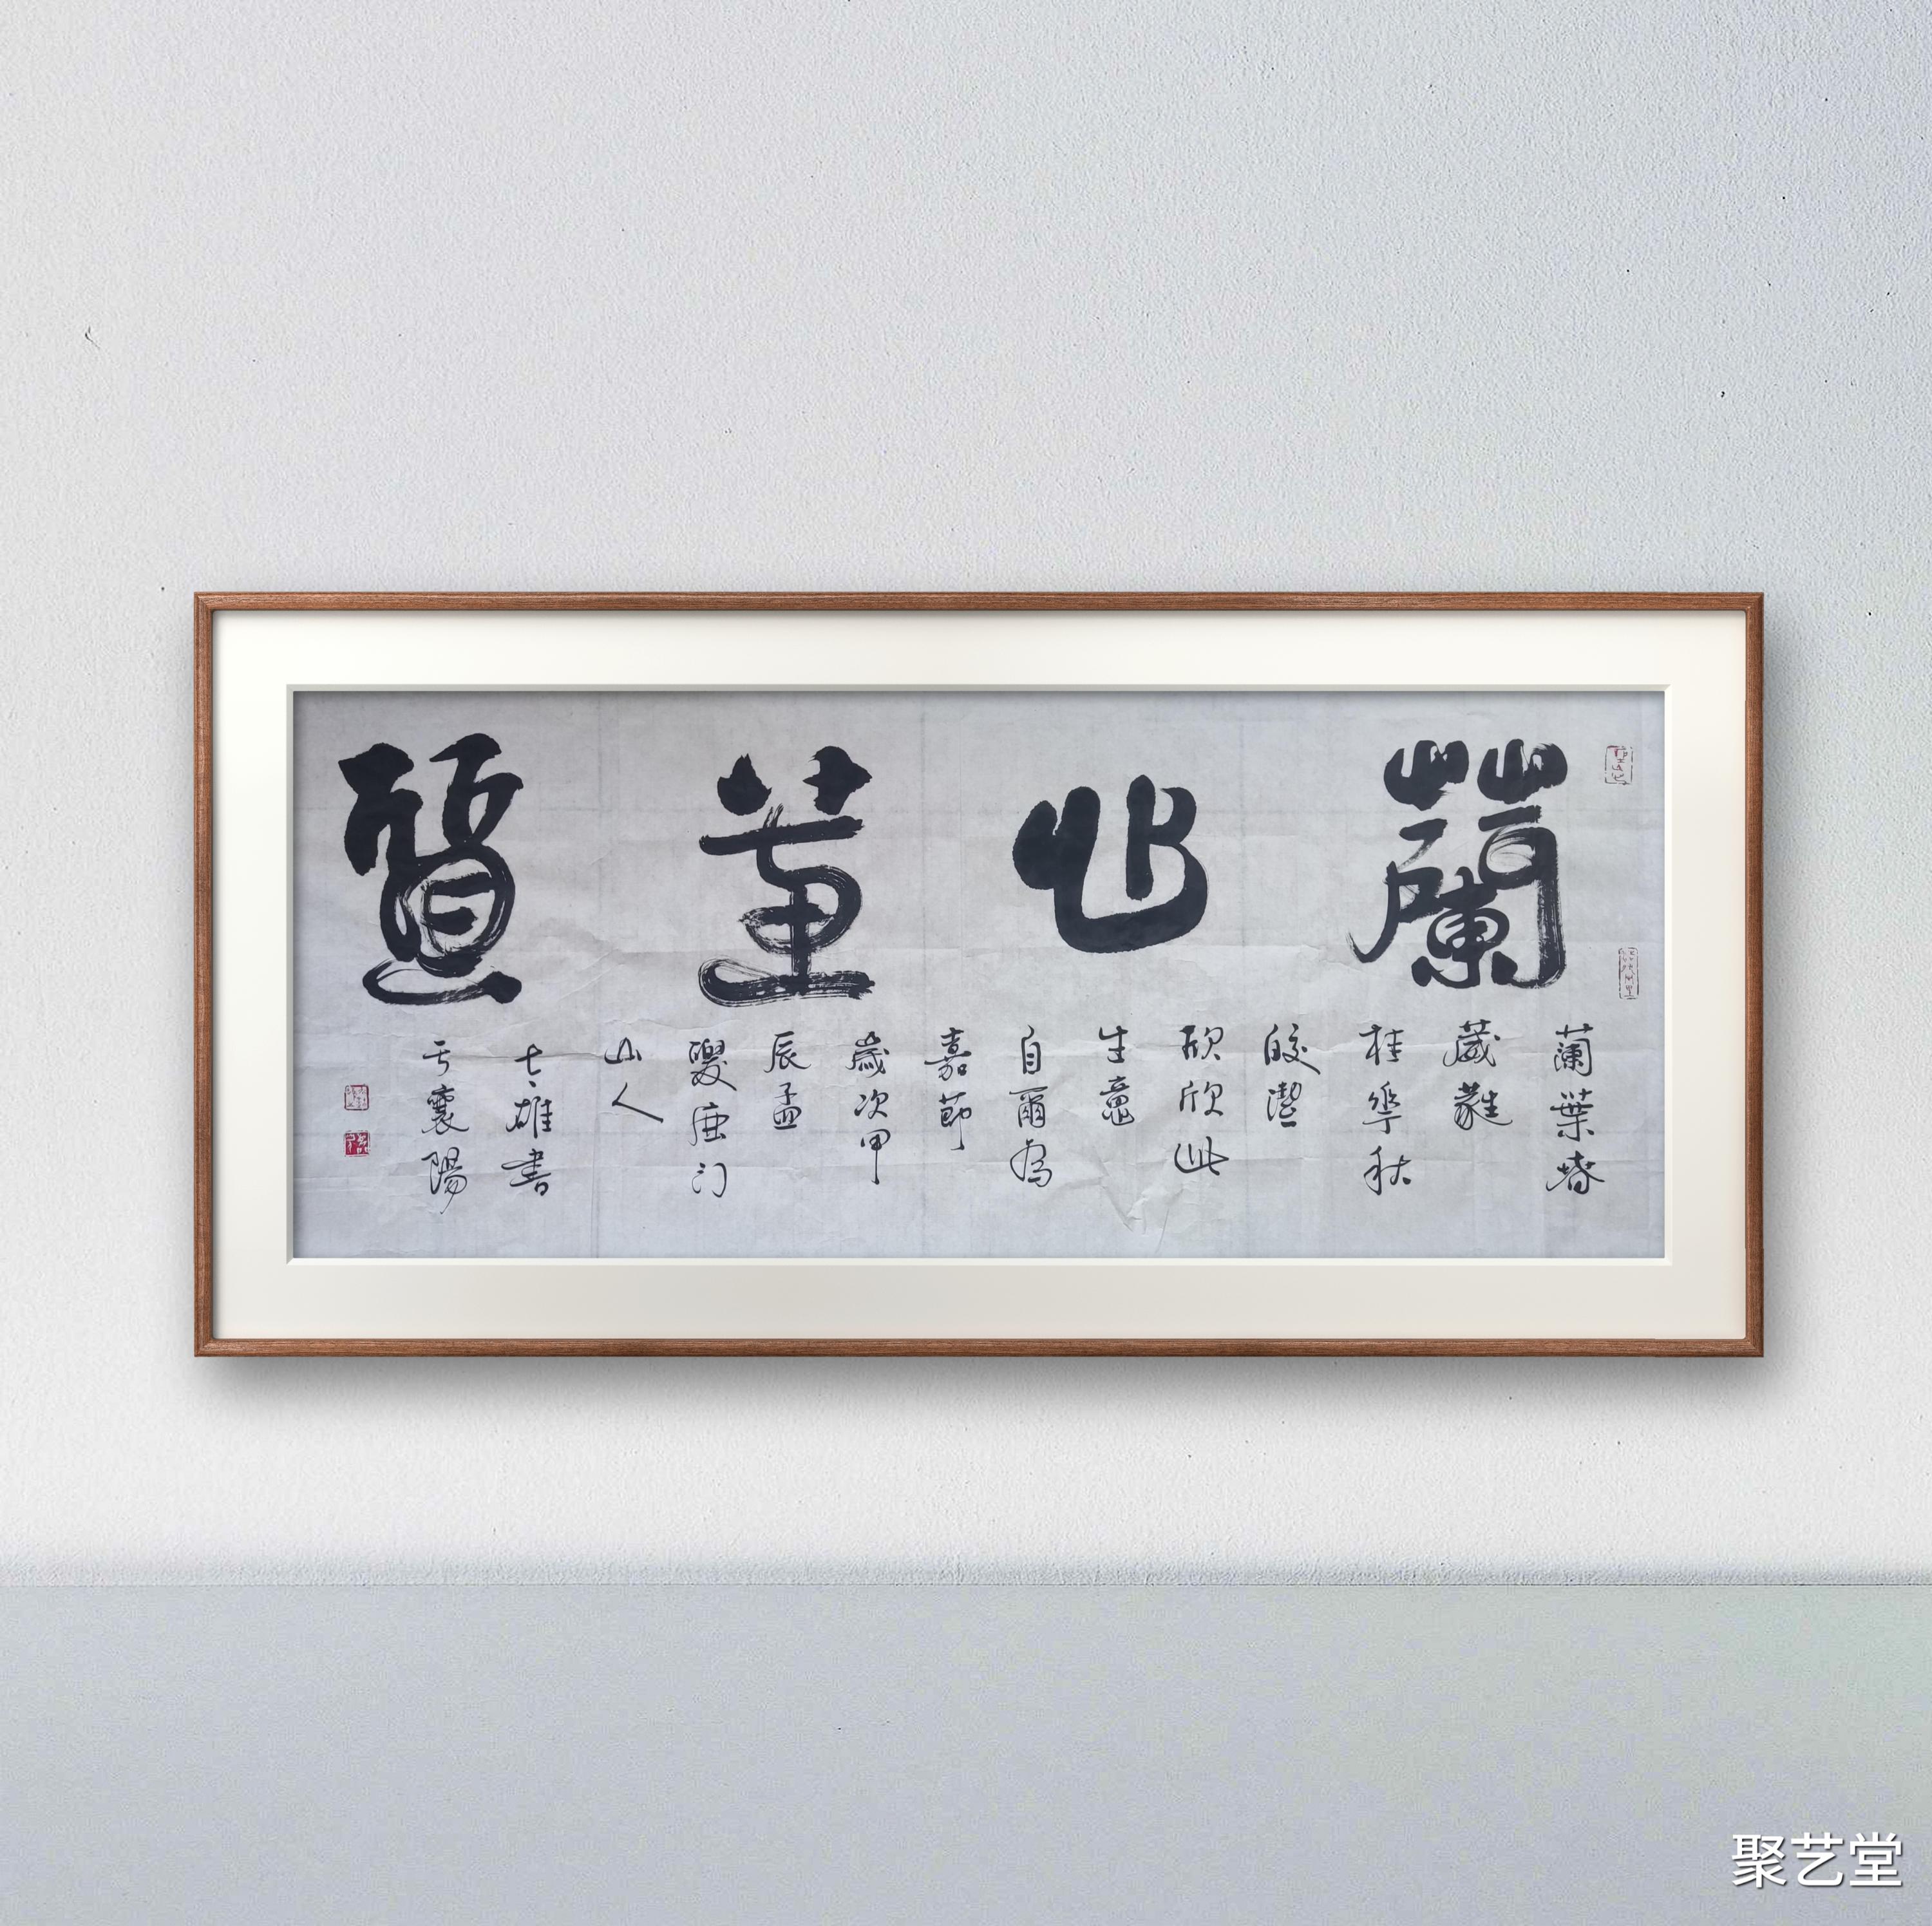 蘭心蕙質
蘭葉春
葳蕤
桂華秋
皎潔
欣欣此
生意
自爾為
嘉節
歲次甲
辰孟
夏鹿门
山人
雄書
于襄陽
聚艺堂